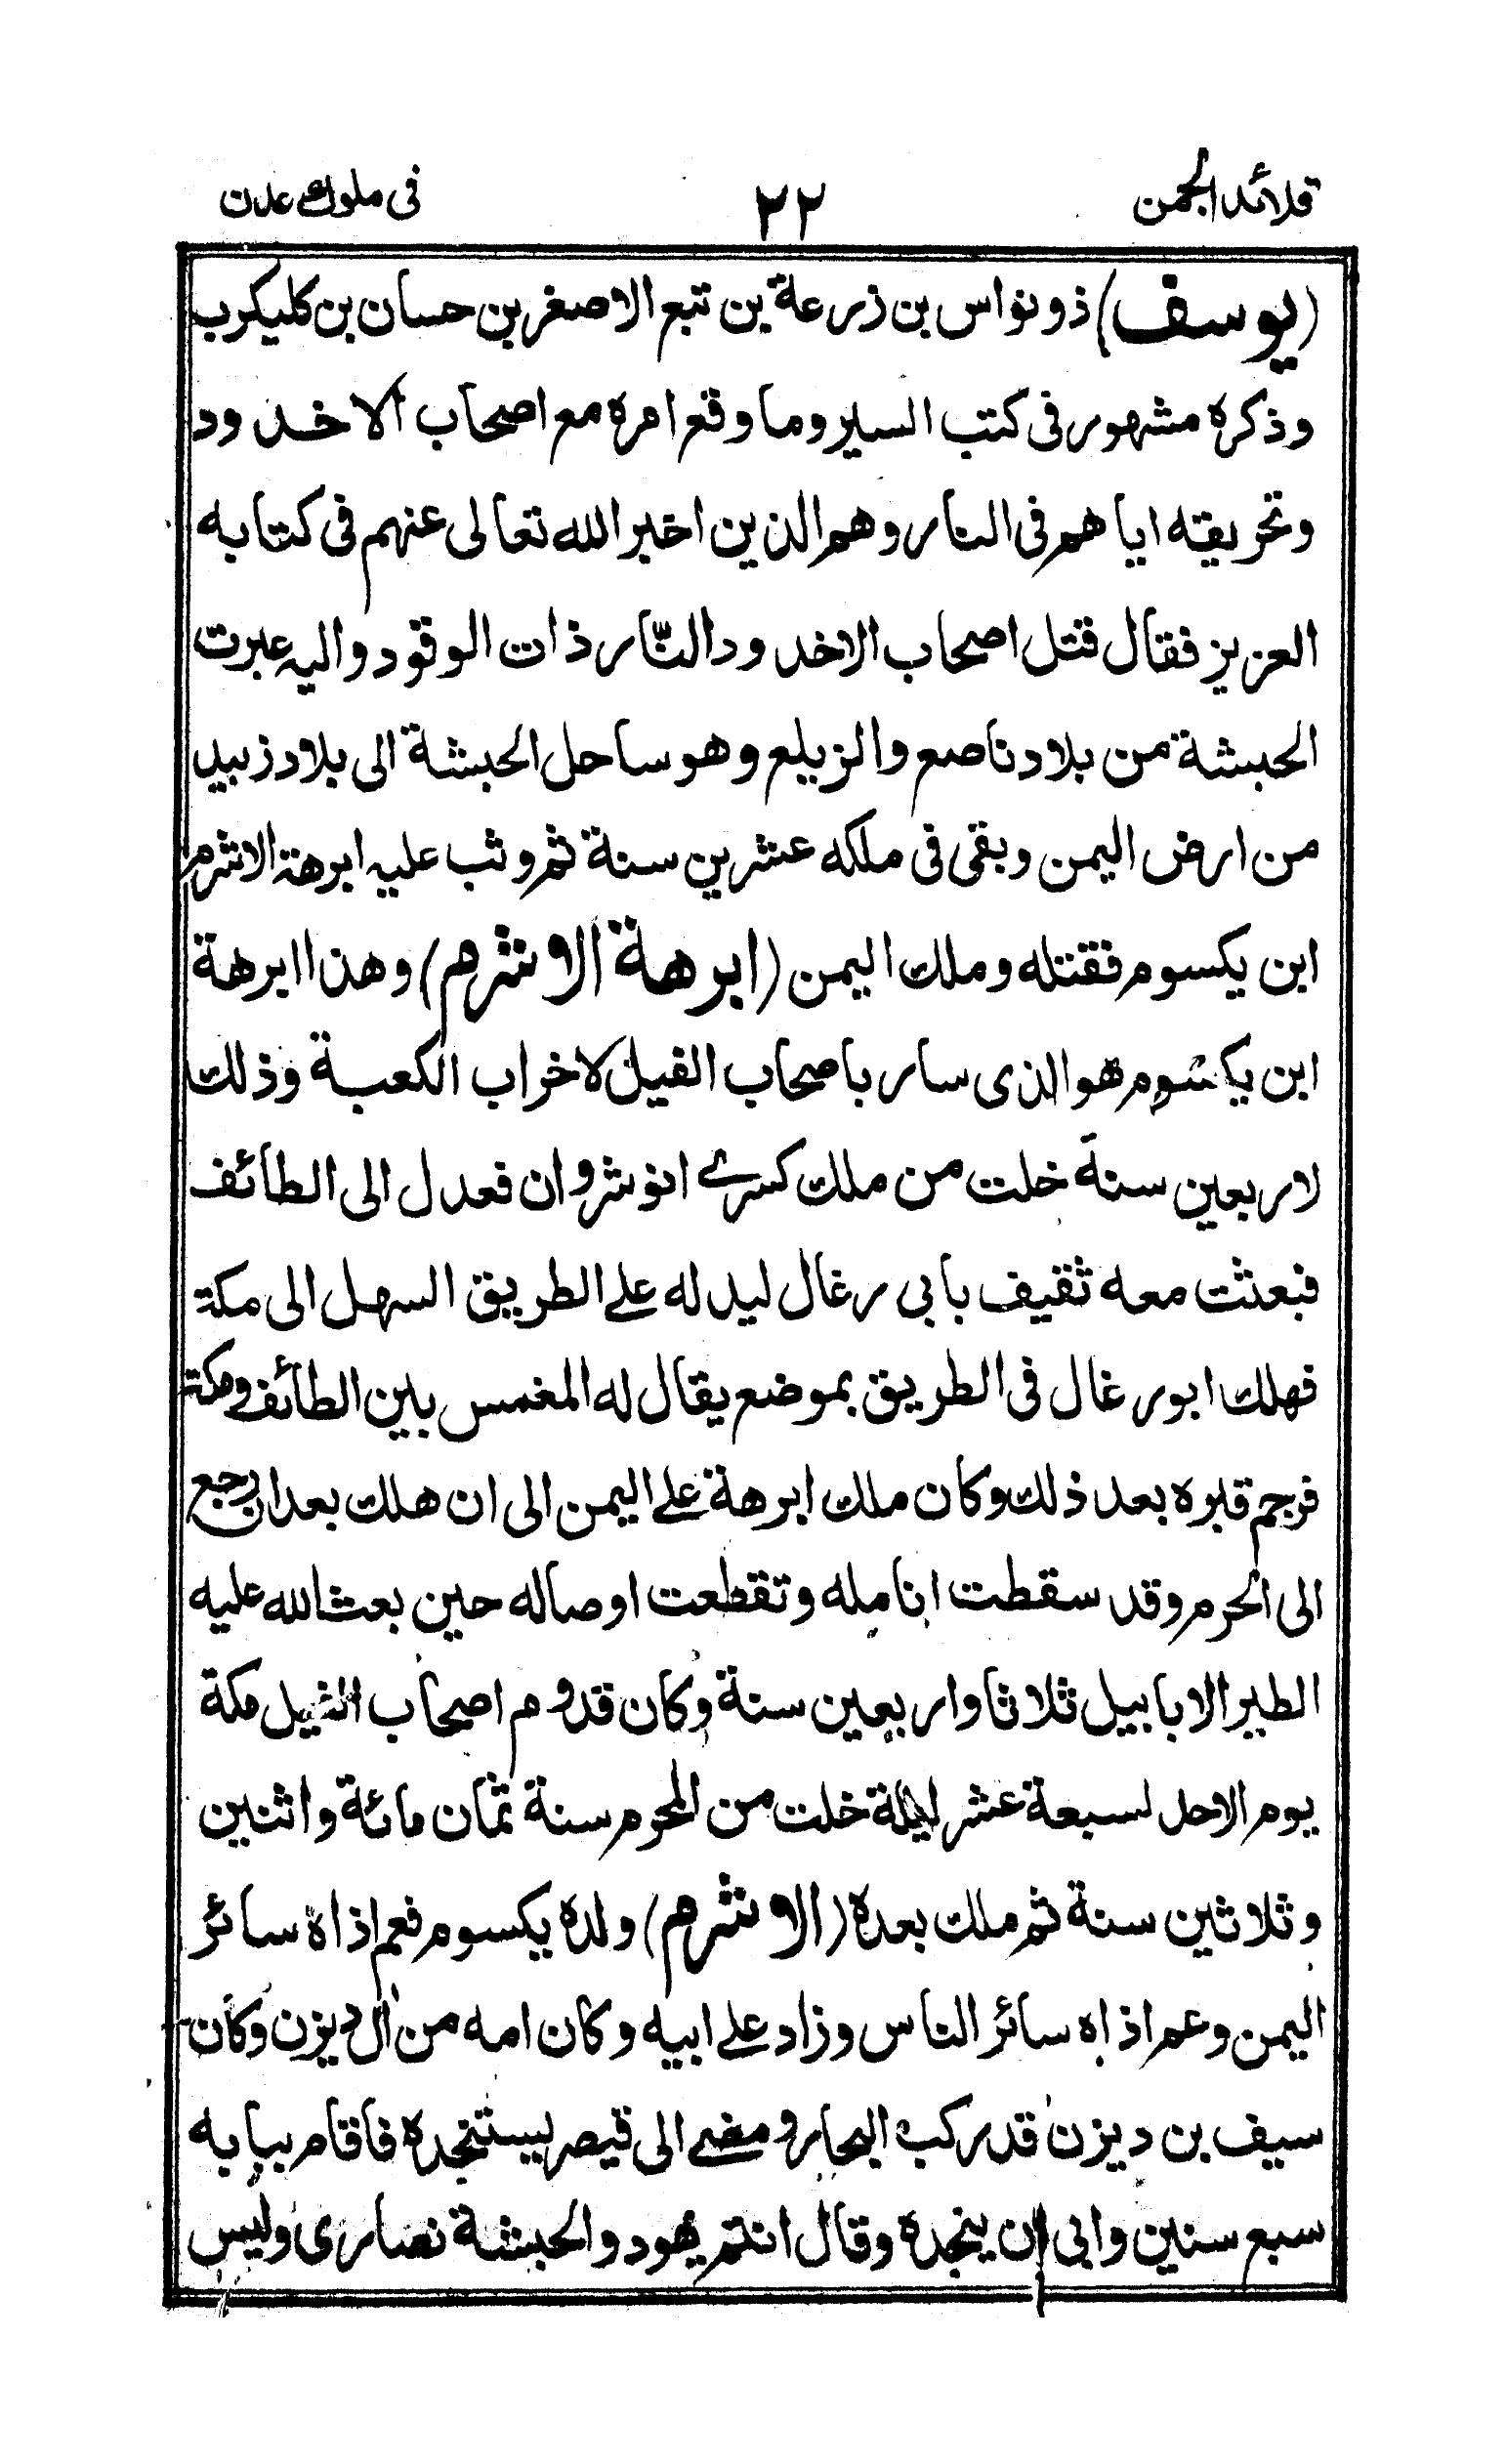 قلائد الجمن ٢٢ فى ملوك عدن
(يوسف) ذو نواس بن زرعة بن تبع الاصغر بن حسان بن كليكرب
وذكره مشهور فى كتب السير وما وقع امره مع اصحاب الاخدود
وتحريقه اياهم فى النار وهم الذين اخبر الله تعالى عنهم فى كتابه
العزيز فقال قتل اصحاب الاخدود النّار ذات الوقود واليه عبرت
الحبشة من بلاد ناصع والزيلع وهو ساحل الحبشة الى بلاد زبيد
من ارض اليمن وبقى فى ملكه عشرين سنة ثم وثب عليه ابرهة الاشرم
ابن يكسوم فقتله وملك اليمن (ابرهة الاشرم) وهذا ابرهة
ابن يكسوم هو الذى سار باصحاب الفيل لاخراب الكعبة وذلك
لاربعين سنة خلت من ملك كسرے انوشروان فعدل الى الطائف
فبعثت معه ثقيف بابى رغال ليدله على الطريق السهل الى مكة
فهلك ابورغال فى الطريق بموضع يقال له المغمس بين الطائف ومكة
فرجم قبره بعد ذلك وكان ملك ابرهة على اليمن الى ان هلك بعد ان رجع
الى الحرم وقد سقطت انامله وتقطعت اوصاله حين بعث الله عليه
الطير الابابيل ثلاثا واربعين سنة وكان قدوم اصحاب الفيل مكة
يوم الاحد لسبعة عشر ليلة خلت من المحرم سنة ثمان مائة واثنين
وثلاثين سنة ثم ملك بعده (الاشرم) ولده يكسوم فعم اذاه سائر
اليمن وعم اذاه سائر الناس وزاد على ابيه وكان امه من ال ديزن وكان
سيف بن ديزن قد ركب البحار ومضے الى قيصر ليستنجده فاقام ببابه
سبع سنين وابى ان ينجده وقال انتم يهود والحبشة نصارى وليس